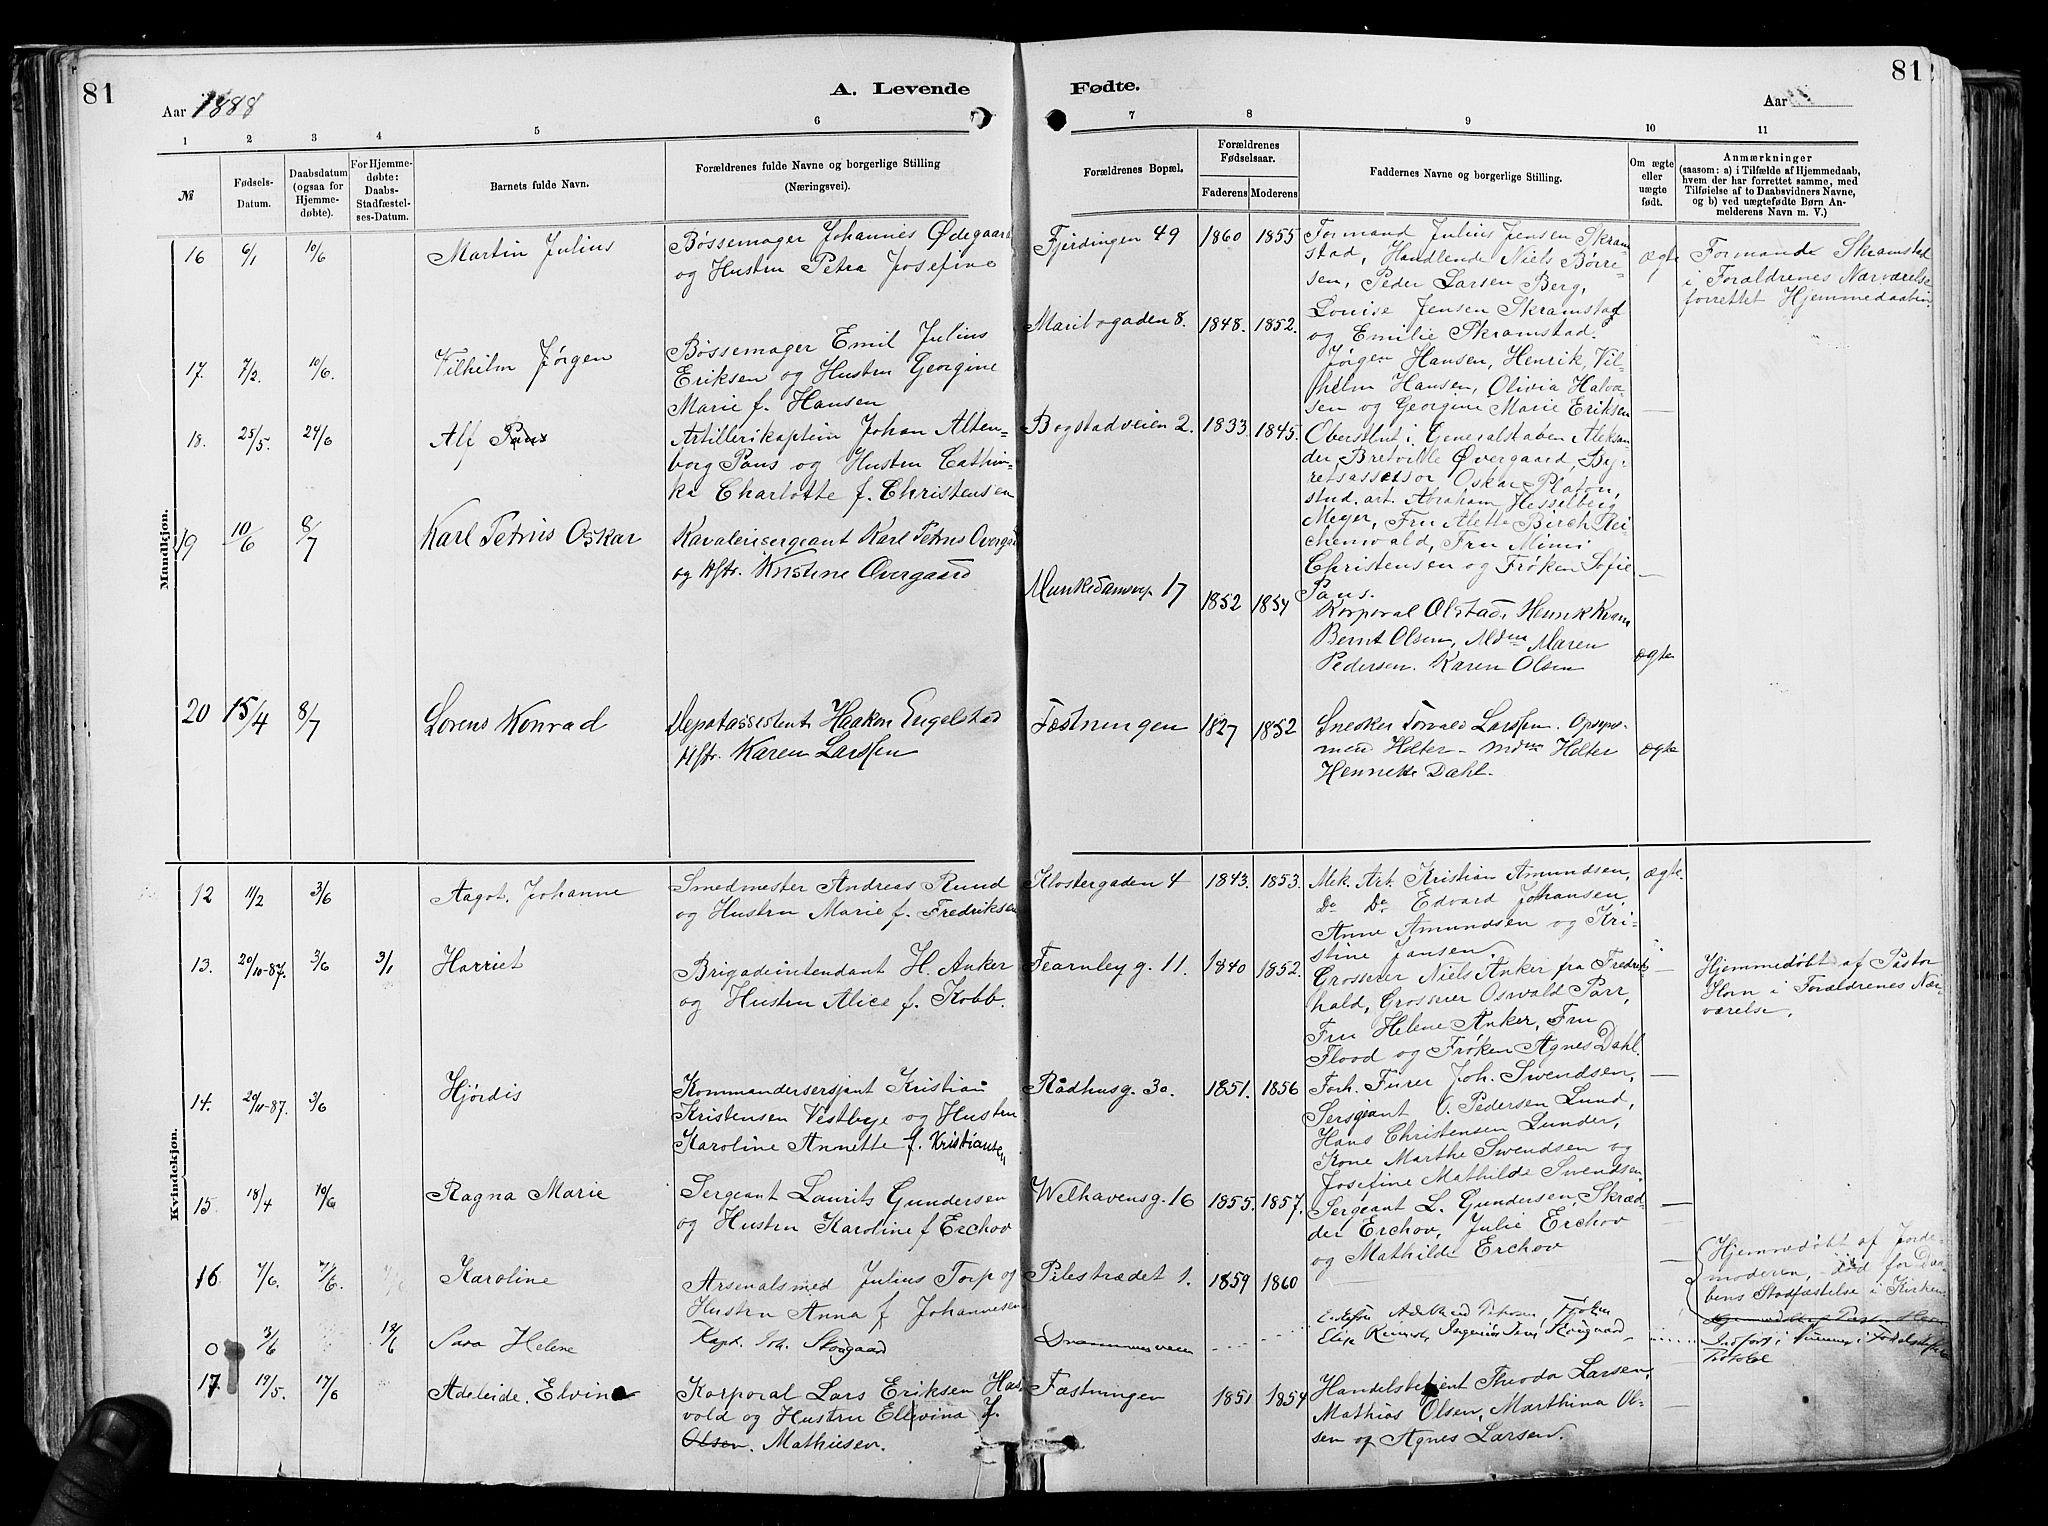 81
Aar 1888
A. Levende
Fødte.
Aar
81
1 2 3 4 5 6 7 8 9 10 11
№
Fødsels-
Datum.
Daabsdatum
(ogsaa for
Hjemme-
døbte).
For Hjemme-
døbte:
Daabs-
Stadfæstel-
ses-Datum.
Barnets fulde Navn.
Forældrenes fulde Navne og borgerlige Stilling
(Næringsvei).
Forældrenes Bopæl.
Forældrenes
Fødselsaar.
Faderens Moderens
Faddernes Navne og borgerlige Stilling.
Om ægte
eller
uægte
født.
Anmærkninger
(saasom: a) i Tilfælde af Hjemmedaab,
hvem der har forrettet samme, med
Tilføielse af to Daabsvidners Navne,
og b) ved uægtefødte Børn An-
melderens Navn m. V.)
Mandkjøn.
16 6/1 10/6 Martin Julius
Bøssemager Johannes Ødegaard
og Hustru Petra Josefine
Fjerdingen 49 1860 1855
Formand Julius Jensen Skram-
stad, Handlende Niels Børre-
sen, Peder Larsen Berg,
Louise Jensen Skramstad
og Emilie Skramstad.
ægte
Formand Skramstad
i Forældrenes Nærværelse
forrettet Hjemmedaaben.
17. 7/2. 10/6. Vilhelm Jørgen
Bøssemager Emil Julius
Eriksen og Hustru Georgine
Marie f. Hansen
Maribogaden 8. 1848. 1852.
Jørgen Hansen, Henrik Vil-
helm Hansen, Olivia Halvor-
sen og Georgine Marie Eriksen
—
18. 25/5. 24/6 Alf Paus
Artillerikaptein Johan Alten-
borg Paus og Hustru Cathin-
ka Charlotte f. Christensen
Bogstadveien 2. 1833. 1845.
Oberstlnt i Generalstaben Aleksan-
der Bretville Øvergaard, By-
retsassessor Oskar Platou,
stud. art. Abraham Hesselberg
Meyer, Fru Alette Birch Rei-
chenwald, Fru Mimi
Christensen og Frøken Sofie
Paus.
—
19 10/6 8/7 Karl Petrus Oskar
Kavalerisergeant Karl Petrus Overgaard
og Hstr. Kristine Overgaard
Munkedamsv 17 1852 1854
Korporal Olstad, Henrik Kram
Bernt Olsen, Mdm Maren
Pedersen. Karen Olsen
ægte
20 15/4 8/7 Lorens Konrad
Depotassistent Haakon Engelstad
Hstr. Karen Larssen
Fæstningen 1827 1852
Snedker Torvald Larssen. Opsyns-
mand Holter - Mdm Holter
Henrikke Dahl.
ægte
Kvindekjøn.
12 11/2 3/6 Aagot Johanne
Smedmester Andreas Ruud
og Hustru Marie f. Fredriksen
Klostergaden 4 1843. 1853.
Mek. Arb. Kristian Amundsen,
Do Do Edvard Johansen,
Anne Amundsen og Kri-
stine Jansen.
ægte.
13. 20/10-87. 3/6 3/1 Harriet
Brigadeintendant H. Anker
og Hustru Alice f. Kobb.
Fearnleyg. 11. 1840 1852.
Grosserer Niels Anker fra Fredriks-
hald, Grosserer Oswald Parr,
Fru Helene Anker, Fru
Flood og Frøken Agnes Dahl.
—
Hjemmedøbt af Pastor
Horn i Forældrenes Nær-
værelse.
14. 20/11-87. 3/6 Hjørdis
Kommandersersjant Kristian
Kristensen Vestbye og Hustru
Karoline Annette f. Kristiansen
Rådhusg. 30. 1851. 1856
Forh. Furer Joh. Swendsen,
Sersgeant O. Pedersen Lund,
Hans Christensen Lunder,
Kone Marthe Swendsen og
Josefine Mathilde Swendsen.
15. 18/4 10/6 Ragna Marie
Sergeant Laurits Gundersen
og Hustru Karoline f Erchov
Welhavensg. 16 1855. 1857.
Sergeant L. Gundersen, Skræd-
der Erchov, Julie Erchov
og Mathilde Erchov
—
16. 7/6. 7/6. Karoline
Arsenalsmed Julius Torp og
Hustru Anna f Johannesen
Pilestrædet 1. 1859 1860
—
Hjemmedøbt af Jorde-
moderen, død før Daa-
bens Stadfæstelse i Kirken
0 3/6 12/6 Sara Helene
Kapt. Joh. Skougaard
Drammensveien
17 19/5. 17/6 Adeleide. Elvine
Korporal Lars Eriksen Has-
vold og Hustru Ellvina f.
Olsen. Mathiesen.
Fæstningen 1851 1854
Handelsbetjent Theodor Larsen,
Mathias Olsen, Marthina Ol-
sen og Agnes Larsen.
—